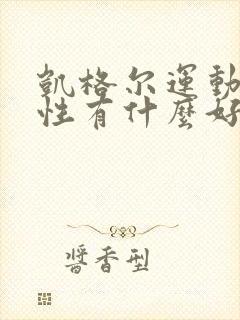 凱格尔運動
性有什麼好
醬香型